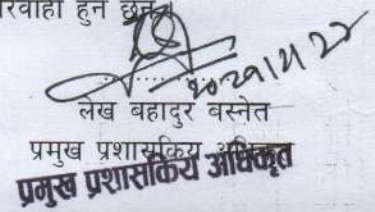 रवाही हुने छन्।
लेख बहादुर बस्नेत
प्रमुख प्रशासकिय
प्रमुख प्रशासकिय अधिकृत